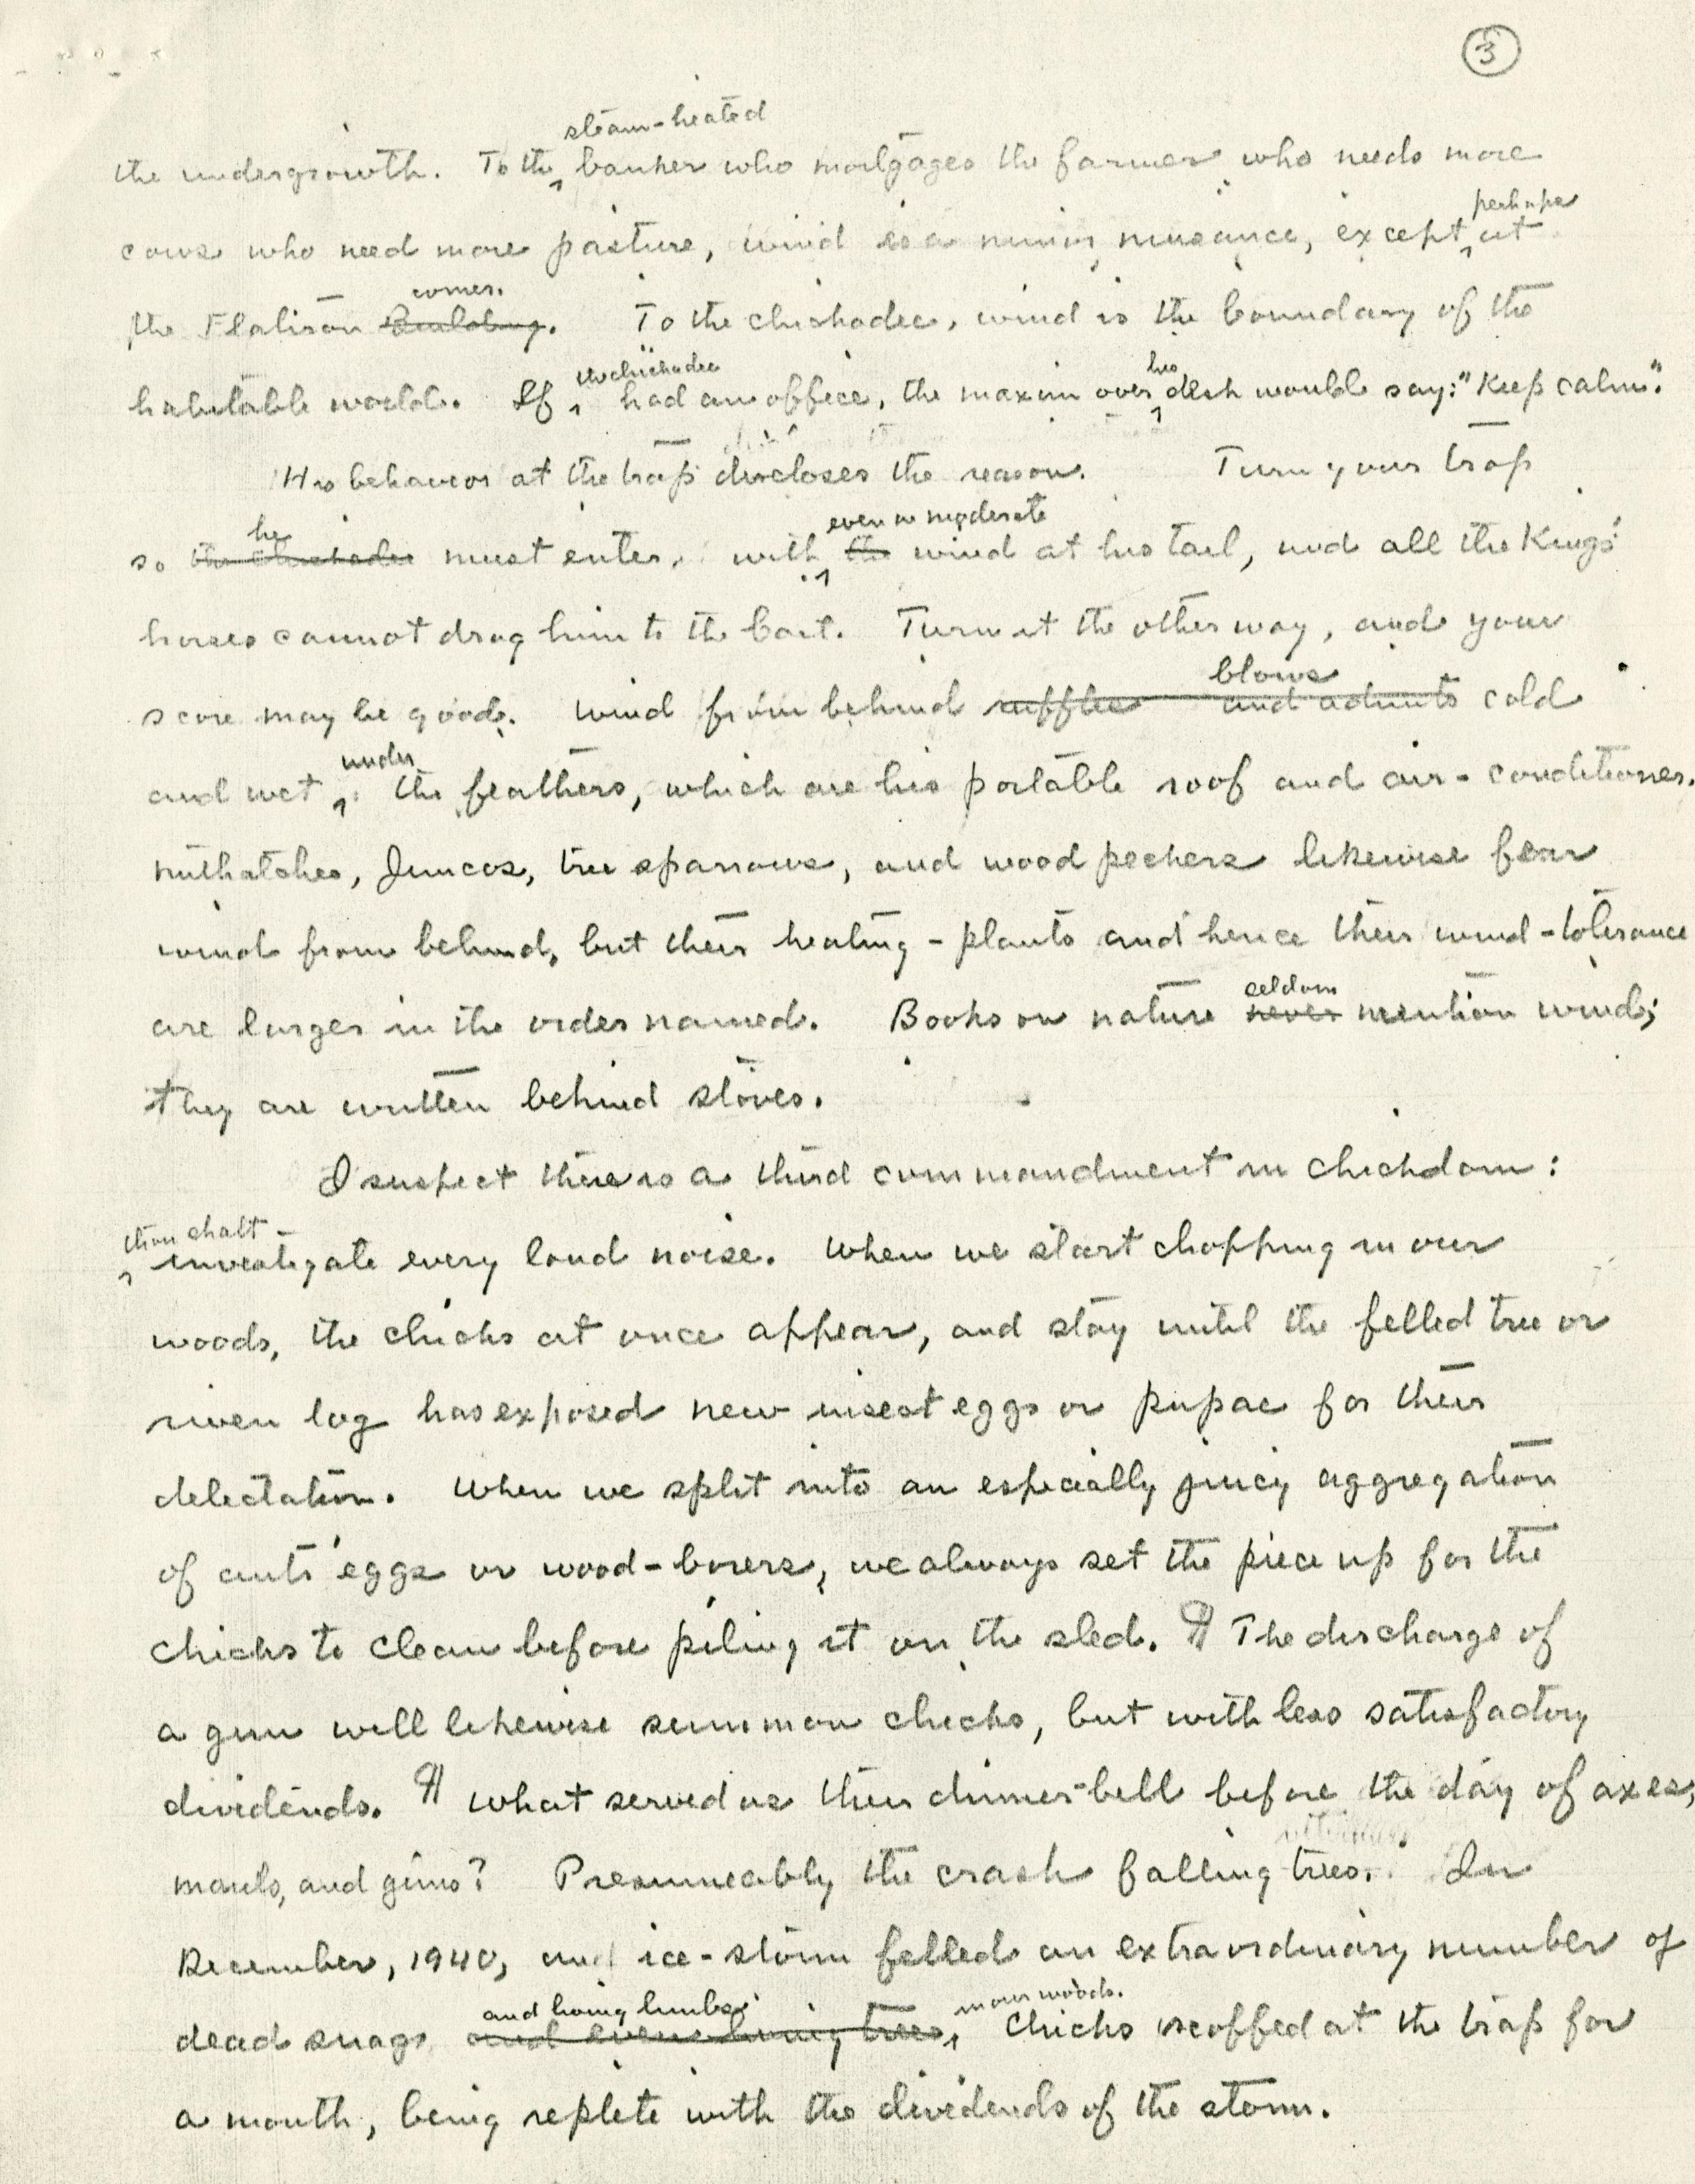 3
steam-heated
the undergrowth. To the ^ banker who mortgages the farmer who needs more
perhaps
cows who need more pasture, wind is a minor nuisance, except ^ at
corner.
the Flatiron Building. To the chickadee, wind is the boundary of the
the chickadee his
habitable world. If ^ had an office, the maxim over ^ desk would say: "Keep calm".
His behavior at the trap discloses the reason. Turn your trap
he even a moderate
so the chickadee must enter, with ^ the wind at his tail, and all the Kings'
horses cannot drag him to the bait. Turn it the other way, and your
blows
score may be good. Wind from behind ruffles and admits cold
under
and wet ^ the feathers, which are his portable roof and air-conditioner.
Nuthatches, Juncos, tree sparrows, and woodpeckers likewise fear
wind from behind, but their heating-plants and hence their wind-tolerance
are larger in the order named. Books on nature
seldom
never mention wind;
they are written behind stoves.
I suspect there is a third commandment in chickdom:
thou shalt
^ investigate every loud noise. When we start chopping in our
woods, the chicks at once appear, and stay until the felled tree or
riven log has exposed new insect eggs or pupae for their
delectation. When we split into an especially juicy aggregation
of ants' eggs or wood-borers, we always set the piece up for the
chicks to clean before piling it on the sled. ¶ The discharge of
a gun will likewise summon chicks, but with less satisfactory
dividends. ¶ What served as their dinner-bell before the day of axes,
mauls, and guns? Presumeably the crash falling trees. In
December, 1940, and ice-storm felled an extraordinary number of
and living limbs in our woods.
dead snags and even living trees ^ Chicks scoffed at the trap for
a month, being replete with the dividends of the storm.